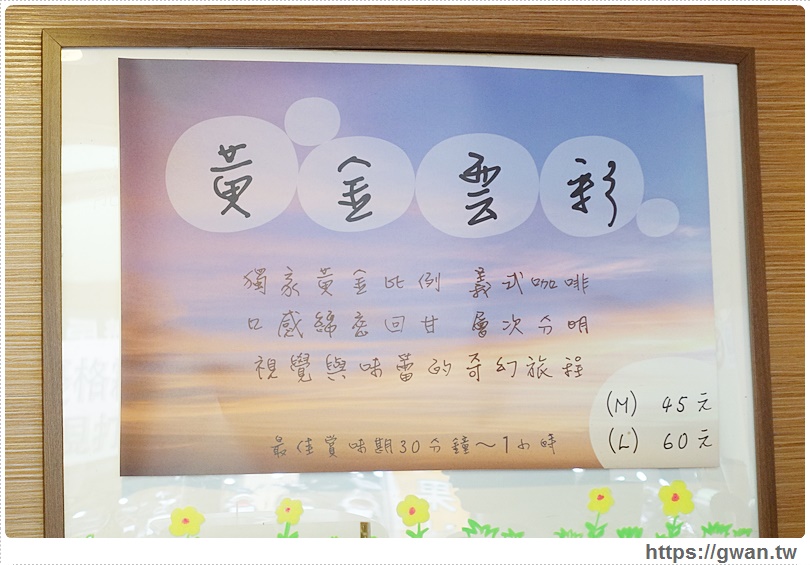 黃金雲彩
獨家黃金比例 義式咖啡
口感綿密回甘 層次分明
視覺與味蕾的奇幻旅程
(M) 45元
(L) 60元
最佳賞味期30分鐘~1小時
果
https://gwan.tw